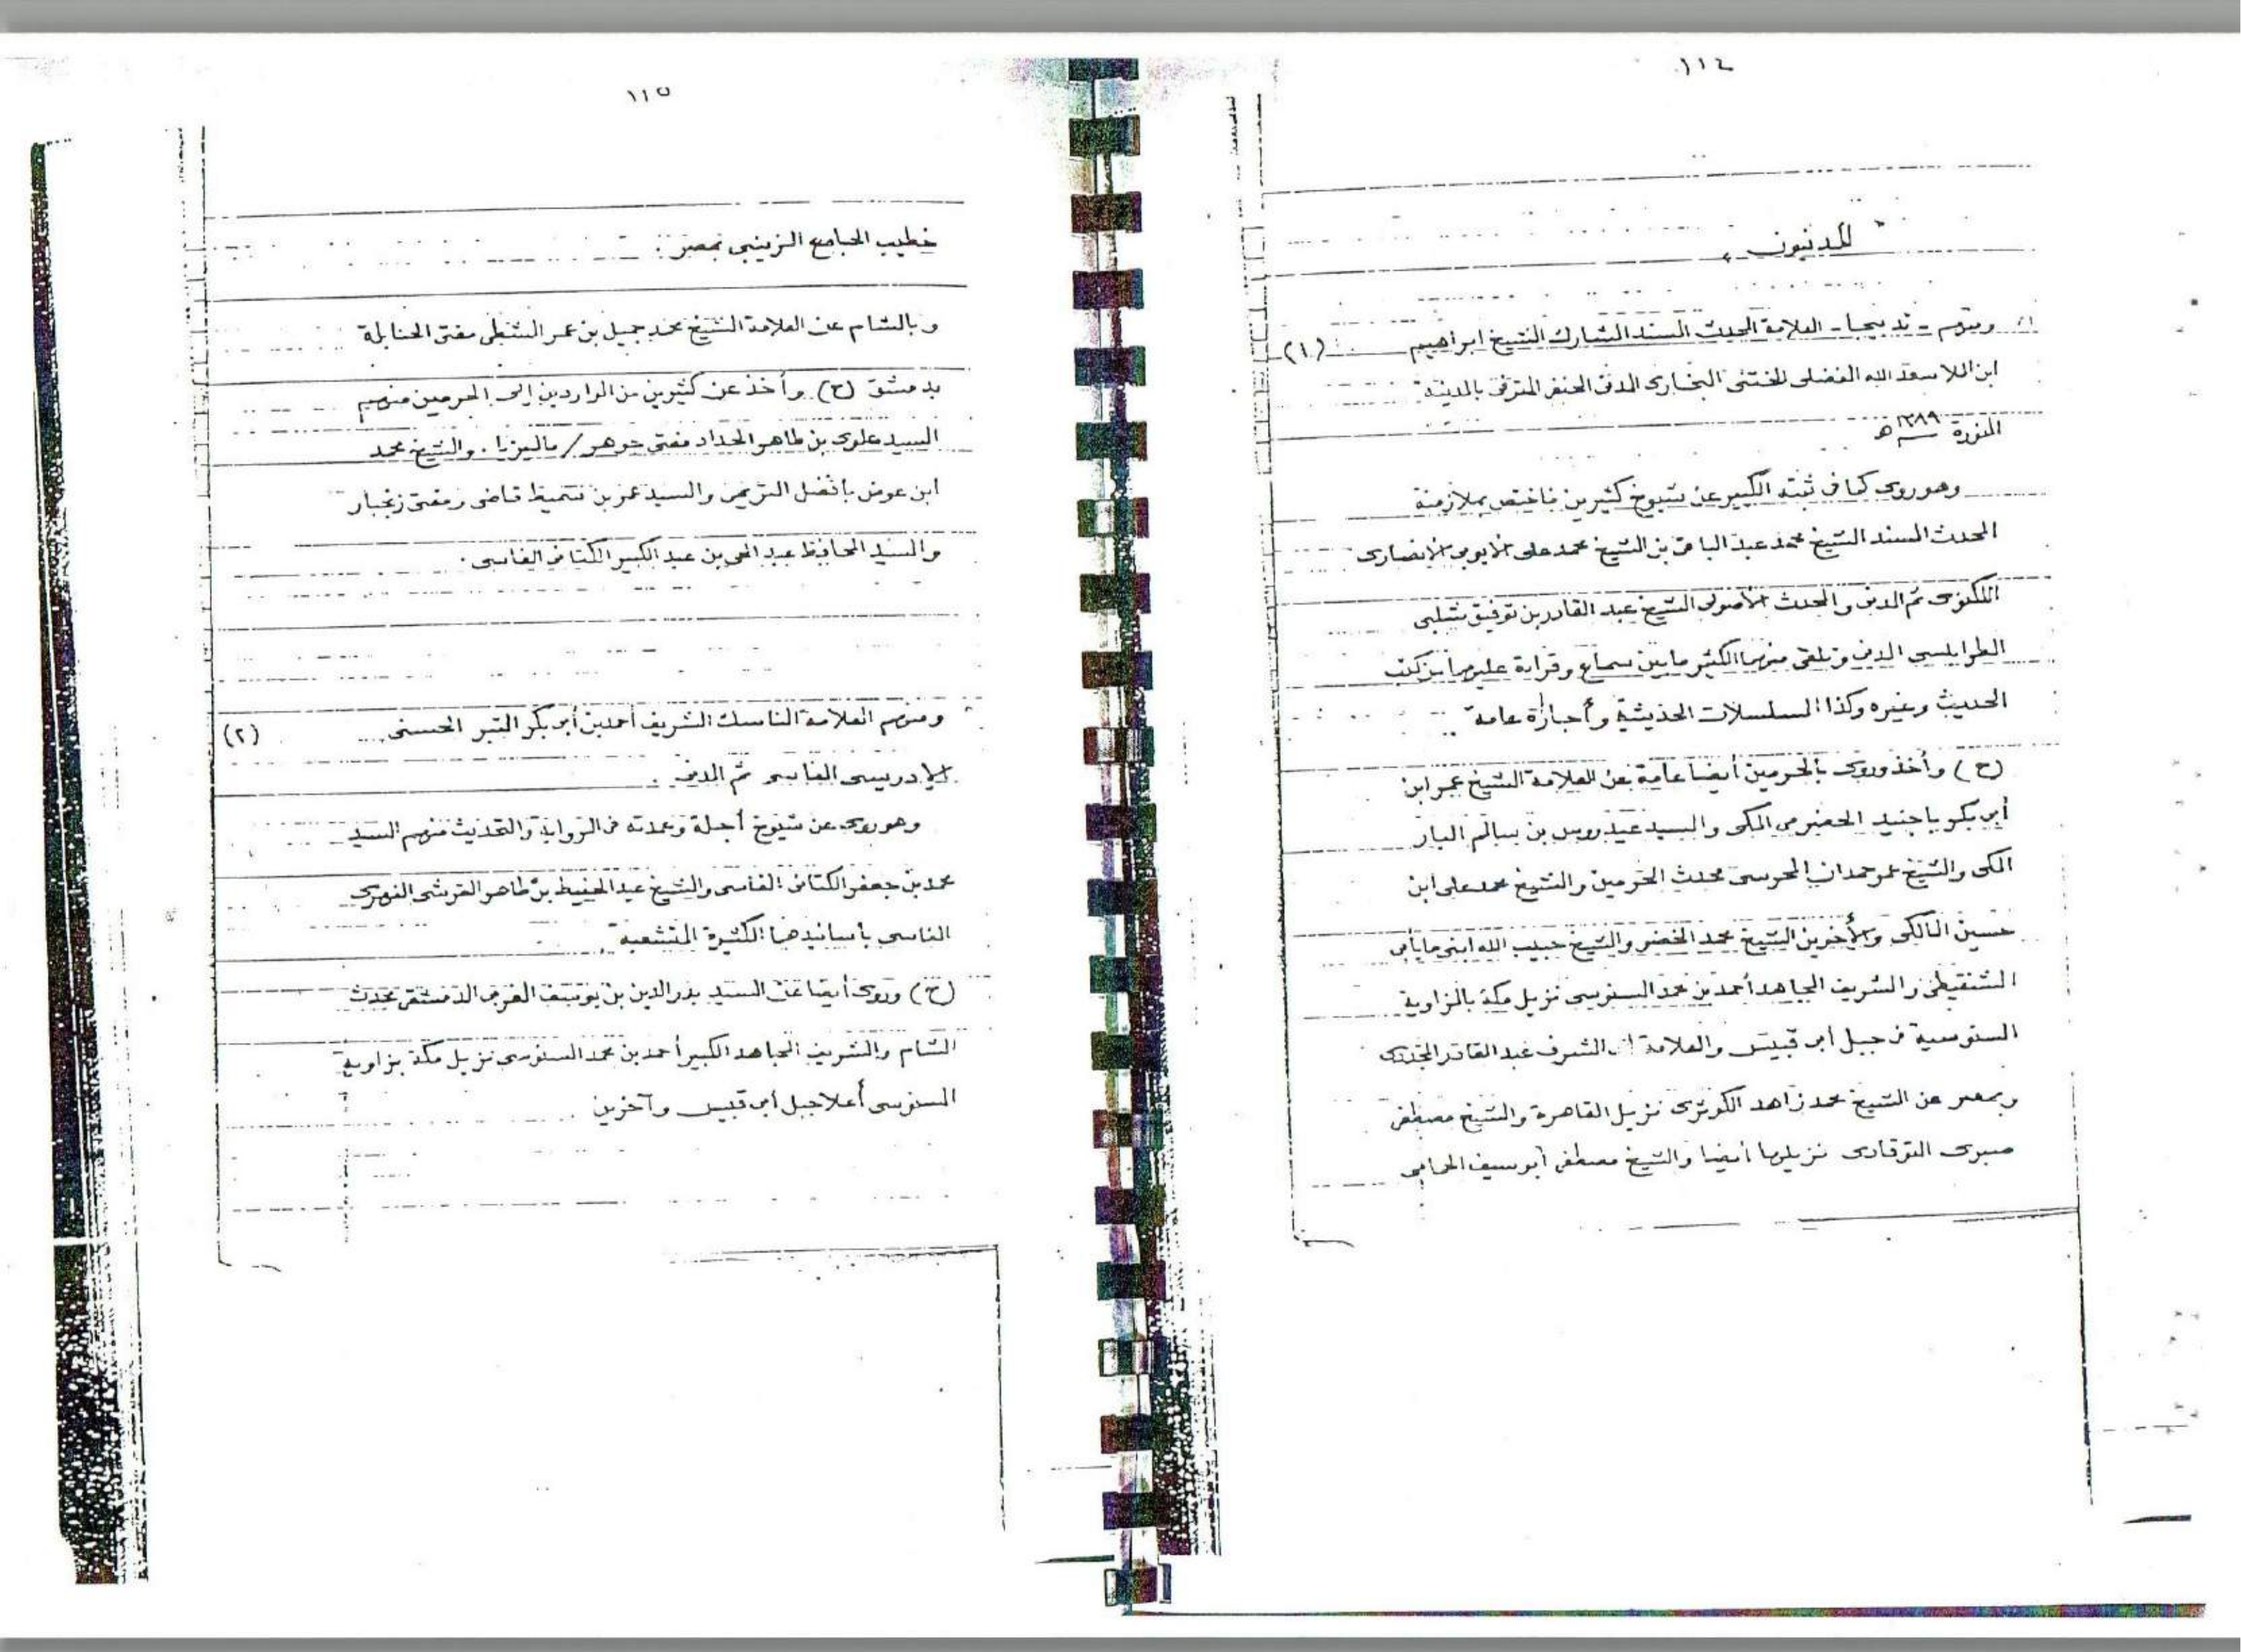 ١١٤
" المدنيون "
ومنهم - تدبيجا - العلامة المحدث المسند المشارك الشيخ ابراهيم (١)
ابن الملا سعد الله الفضلي الختني البخاري المدني الحنفي المتوفى بالمدينة
المنورة ١٣٨٩ هـ
وهو روى كما في ثبته الكبير عن شيوخ كثيرين فاختص بملازمة
المحدث المسند الشيخ محمد عبد الباقي بن الشيخ محمد علي الايوبي الانصاري
اللكنوي ثم المدني والمحدث الأصولي الشيخ عبد القادر بن توفيق شلبي
الطرابلسي المدني وتلقى منهما الكثير مابين سماع وقراءة عليهما من كتب
الحديث وغيره وكذا المسلسلات الحديثية وأجازاه عامة
(ح) وأخذ وروى بالحرمين أيضا عامة عن العلامة الشيخ عمر ابن
أبي بكر باجنيد الحضرمي المكي والسيد عيدروس بن سالم البار
المكي والشيخ عمر حمدان المحرسي محدث الحرمين والشيخ محمد علي ابن
حسين المالكي والأخوين الشيخ محمد الخضر والشيخ حبيب الله ابني مايأبى
الشنقيطي والشريف المجاهد أحمد بن محمد السنوسي نزيل مكة بالزاوية
السنوسية في جبل أبي قبيس والعلامة الشرف عبد القادر
وبمصر عن الشيخ محمد زاهد الكوثري نزيل القاهرة والشيخ مصطفى
صبرى التوقادى نزيلها أيضا والشيخ مصطفى أبو سيف الحمامي
١١٥
خطيب الجامع الزينبي بمصر .
وبالشام عن العلامة الشيخ محمد جميل بن عمر الشطي مفتي الحنابلة
بدمشق (ح) وأخذ عن كثيرين من الواردين إلى الحرمين منهم
السيد علوي بن طاهر الحداد مفتي جوهر / ماليزيا . والشيخ محمد
ابن عوض بافضل التريمي والسيد عمر بن سميط قاضي ومفتي زنجبار
والسيد الحافظ عبد الحي بن عبد الكبير الكتاني الفاسي .
ومنهم العلامة الناسك الشريف أحمد بن أبي بكر التبر الحسني (٢)
الإدريسي الفاسي ثم المدني .
وهو روى عن شيوخ أجلة وعمدته في الرواية والتحديث منهم السيد
محمد بن جعفر الكتاني الفاسي والشيخ عبد الحفيظ بن طاهر القرشي الفهري
الفاسي بأسانيدهما الكثيرة المتشعبة
(ح) وروى أيضا عن السيد بدر الدين بن يوسف المغربي الدمشقي محدث
الشام والشريف المجاهد الكبير أحمد بن محمد السنوسي نزيل مكة بزاوية
السنوسي أعلا جبل أبي قبيس وآخرين